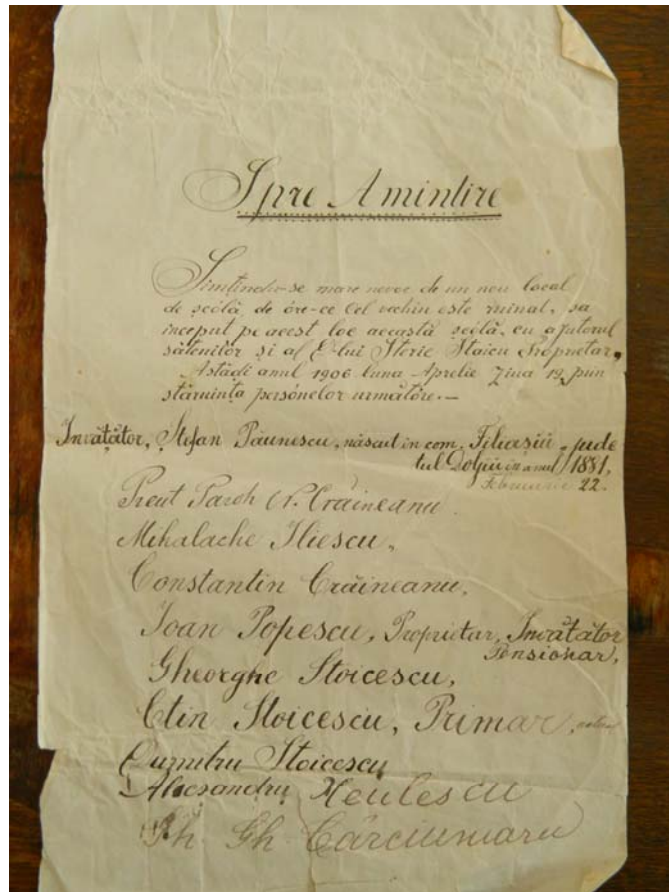 Spre Amintire
Simțindu-se mare nevoe de un nou local
de șcólă, de óre-ce cel vechiu este ruinat, sa
început pe acest loc această șcólă, cu ajutorul
sătenilor și al D-lui Storie Staicu Proprietar,
Astăḑi anul 1906 luna Aprelie Ziua 19, pun
stăruința persónelor următóre.—
Învățător, Ștefan Păunescu, născut în com. Filiașiu, jude
țul Doljiu în anul 1881,
Februarie 22.
Preut Paroh N. Crăineanu.
Mihalache Iliescu,
Constantin Crăineanu,
Ioan Popescu, Proprietar, Învățător
Pensionar,
Gheorghe Stoicescu,
Ctin Stoicescu, Primar,
Dumitru Stoicescu
Alecsandru
Gh. Gh. Cârciumaru